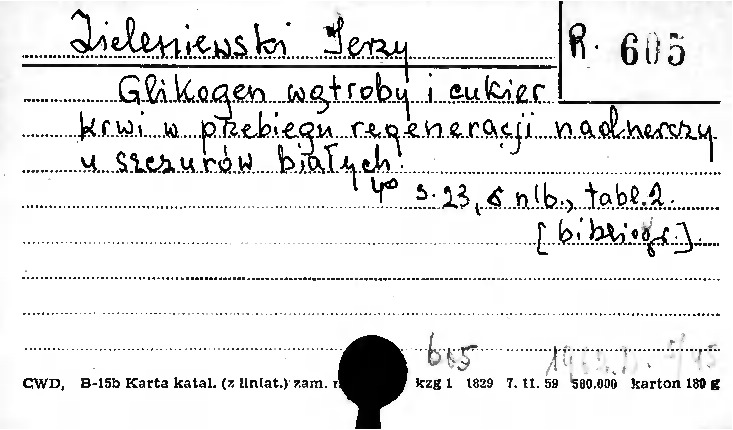 Zieleniewski Jerzy
R. 605
Glikogen wątroby i cukier
krwi w przebiegu regeneracji nadnerczy
u szczurów białych.
4° s. 23, 5 nlb., tabl. 2.
[bibliogr.].
605
CWD, B-15b Karta katal. (z liniat.) zam. kzg 1 1829 7. 11. 59 500.000 karton 180 g